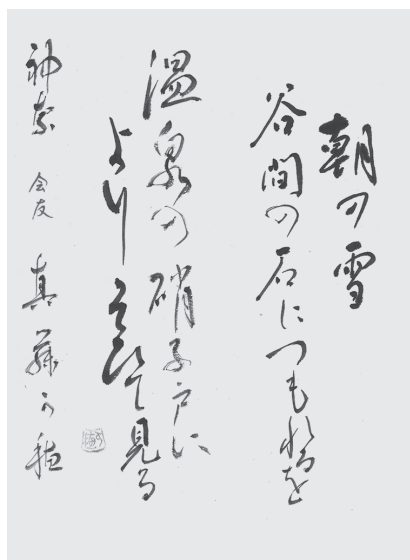 朝の雪
谷間の石につもれるを
温泉の硝子戸に
よりそひて見る
神奈 会友 真藤